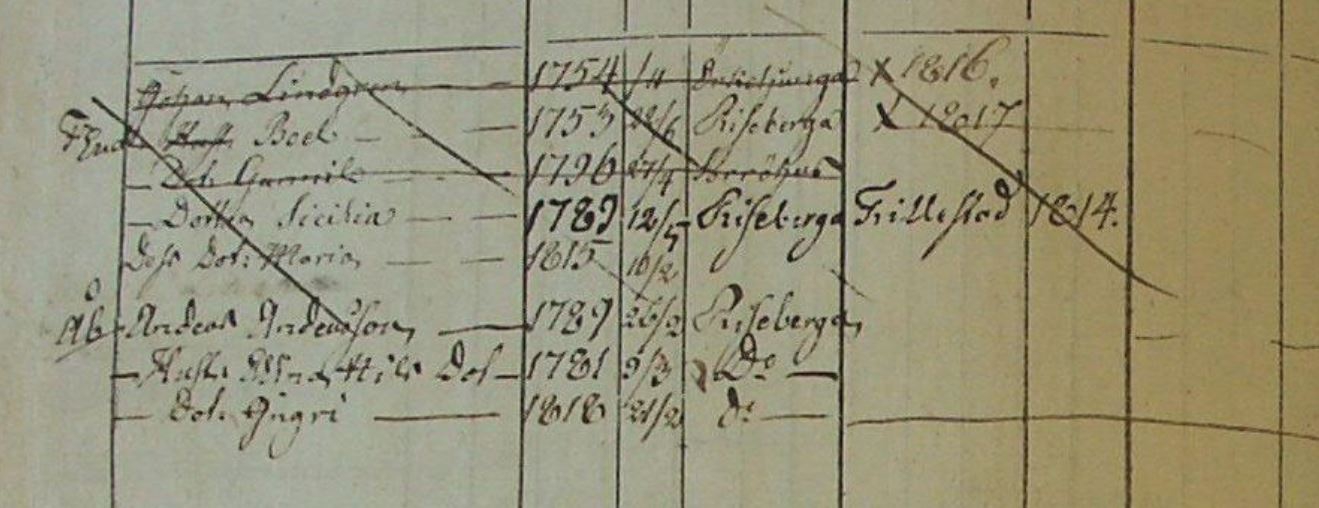 Johan Lindgren 1754 /4 X 1816.
Enk Hust. Boel 1753 22/6 Riseberga X 1817
Dot. Gunnil 1796 27/4
Dotter Sicilia 1789 12/5 Riseberga Fillestad 1814.
Dess Dot: Maria 1815 16/2
Åb Anders Andersson 1789 26/2 Riseberga
Hust. Nils Dot 1781 9/3 Do
Dot. Ingri 1818 21/2 do